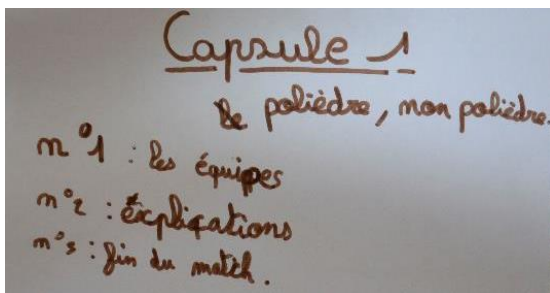 Capsule 1
le polièdre, non polièdre.
n°1 : les équipes
n°2 : explications
n°3 : fin du match.